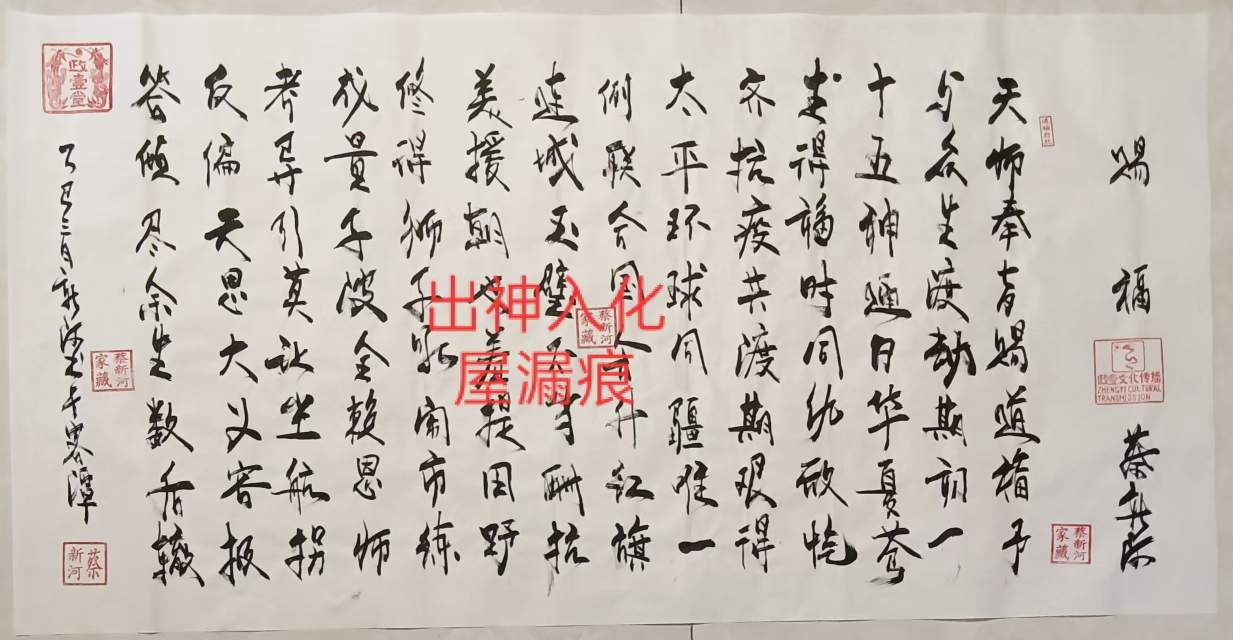 赐福
蔡新河
天师奉旨赐道福予
与众生渡劫期初一
十五神通日华夏苍
走得福时同仇敌忾
齐抗疫共渡期艰得
太平环球同疆难一
例联合国会升红旗
连城玉璧不肯酬抗
美援朝也羞提田野
修得狮子吼闹市练
成量子波全赖恩师
考导引莫让坐航拐
反偏天恩大义容报
答倾尽余生数香辙
乙巳三月新河书于寒潭
政壹堂
蔡新河家藏
蔡新河
政壹文化传播
ZHENGYI CULTURAL
TRANSMISSION
蔡新河家藏
蔡新河家藏
出神入化
屋漏痕